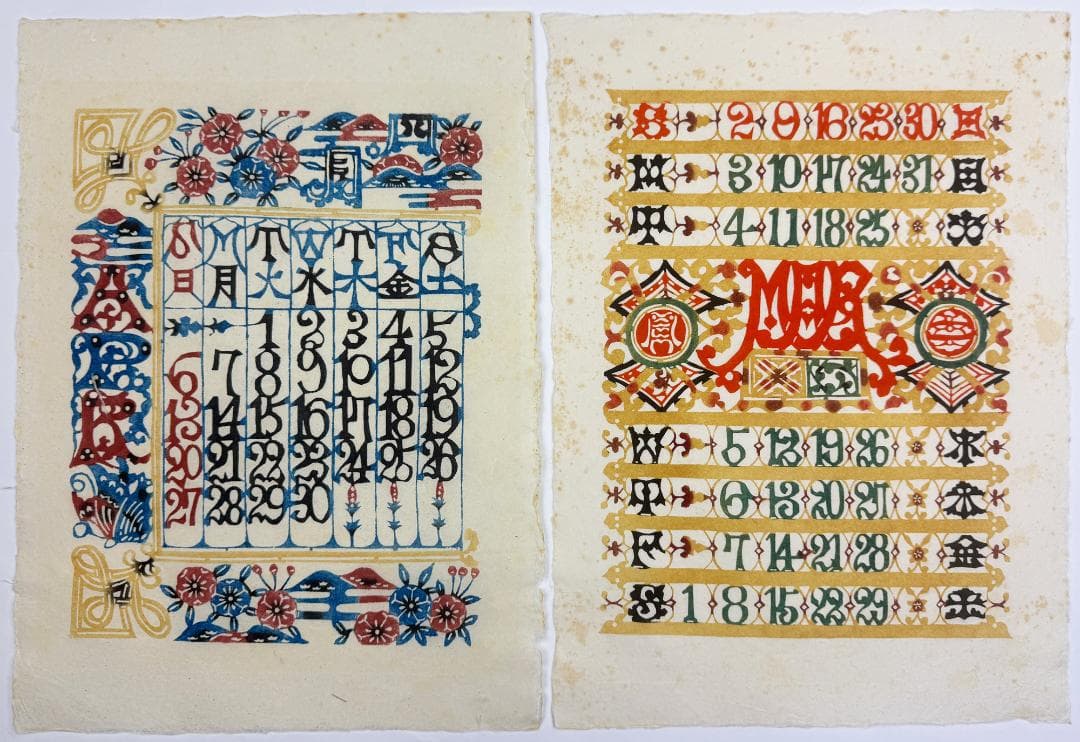 APR
S M T W T F S
日 月 火 水 木 金 土
1 2 3 4 5
6 7 8 9 10 11 12
13 14 15 16 17 18 19
20 21 22 23 24 25 26
27 28 29 30
S 2 9 16 23 30 日
M 3 10 17 24 31 月
T 4 11 18 25 火
MAY
W 5 12 19 26 水
T 6 13 20 27 木
F 7 14 21 28 金
S 1 8 15 22 29 土